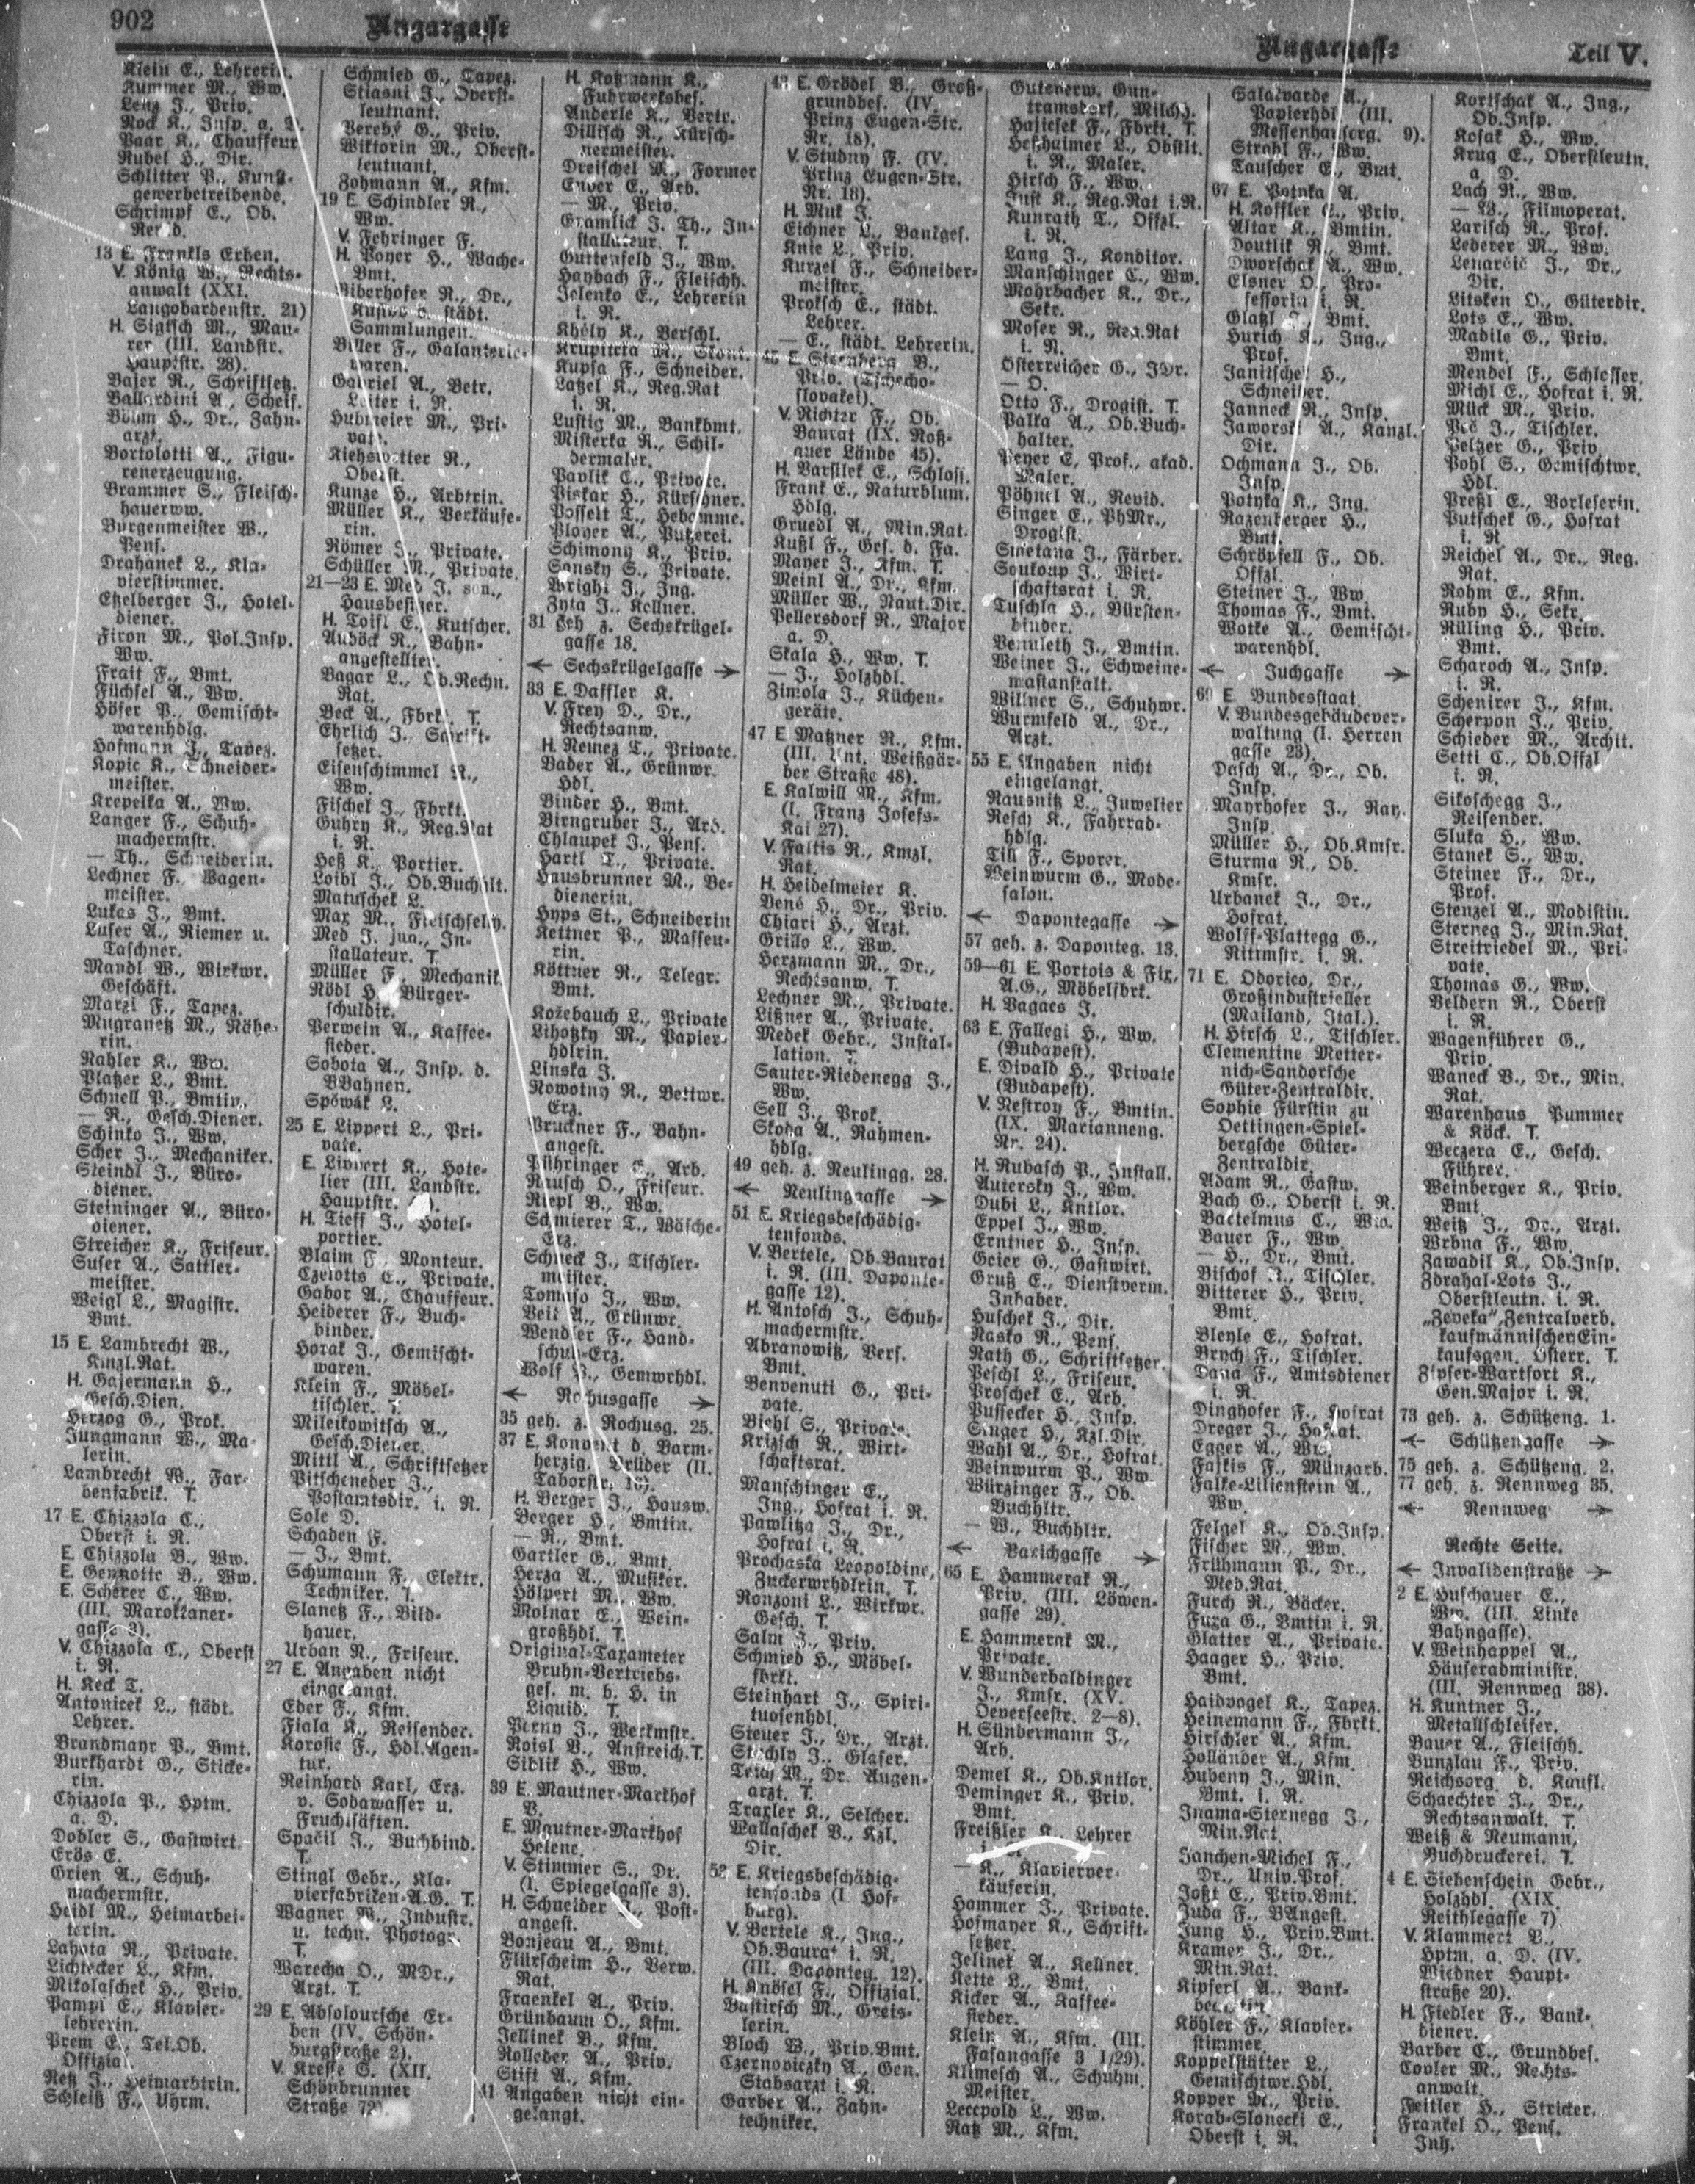 902
Ungargasse
Ungargasse
Teil V.
Klein E., Lehrerin.
Kummer M., Ww.
Lenz J., Priv.
Rock K., Insp. a. D.
Paar K., Chauffeur
Rubel H., Dir.
Schlitter P., Kunst-
gewerbetreibende.
Schrimpf E., Ob.
Revid.
13 E. Frankls Erben.
V. König W., Rechts-
anwalt (XXI.
Langobardenstr. 21)
H. Sigtsch M., Mau-
rer (III. Landstr.
Hauptstr. 28).
Bajer R., Schriftsetz.
Ballardini A., Schleif.
Böhm H., Dr., Zahn-
arzt.
Bortolotti A., Figu-
renerzeugung.
Brammer S., Fleisch-
hauerww.
Burgenmeister W.,
Pens.
Drahanek L., Kla-
vierstimmer.
Etzelberger J., Hotel-
diener.
Firon M., Pol.Insp.
Ww.
Frait F., Bmt.
Füchsel A., Ww.
Höfer P., Gemischt-
warenhdlg.
Hofmann J., Tapez.
Kopic K., Schneider-
meister.
Krepelka A., Ww.
Langer F., Schuh-
machermstr.
— Th., Schneiderin.
Lechner F., Wagen-
meister.
Lukas J., Bmt.
Luser A., Riemer u.
Taschner.
Mandl W., Wirkwr.
Geschäft.
Marzi F., Tapez.
Mugranetz M., Nähe-
rin.
Nahler K., Ww.
Platzer L., Bmt.
Schnell P., Bmtin.
— R., Gesch.Diener.
Schinko J., Ww.
Scher J., Mechaniker.
Steindl J., Büro-
diener.
Steininger A., Büro-
diener.
Streicher K., Friseur.
Suser A., Sattler-
meister.
Weigl L., Magistr.
Bmt.
15 E. Lambrecht W.,
Kmzl.Rat.
H. Gajermann H.,
Gesch.Dien.
Herzog G., Prok.
Jungmann W., Ma-
lerin.
Lambrecht W., Far-
benfabrik. T.
17 E. Chizzola C.,
Oberst i. R.
E. Chizzola B., Ww.
E. Gennotte B., Ww.
E. Scherer C., Ww.
(III. Marokkaner-
gasse 3).
V. Chizzola C., Oberst
i. R.
H. Keck T.
Antonicek L., städt.
Lehrer.
Brandmayr P., Bmt.
Burkhardt G., Sticke-
rin.
Chizzola P., Hptm.
a. D.
Dobler S., Gastwirt.
Erös E.
Grien A., Schuh-
machermstr.
Heidl M., Heimarbei-
terin.
Lahota R., Private.
Lichtecker L., Kfm.
Mikolaschek H., Priv.
Pampi E., Klavier-
lehrerin.
Prem E., Tel.Ob.
Offizial.
Retz J., Heimarbtrin.
Schleiß F., Uhrm.
Schmied G., Tapez.
Stiasni J., Oberst-
leutnant.
Vereby G., Priv.
Wiktorin M., Oberst-
leutnant.
Zohmann A., Kfm.
19 E. Schindler R.,
Ww.
V. Fehringer F.
H. Poyer H., Wache-
Bmt.
Biberhofer R., Dr.,
Kustos d. städt.
Sammlungen.
Biller F., Galanterie-
waren.
Gabriel A., Betr.
Leiter i. R.
Hubmeier M., Pri-
vate.
Kiehswetter R.,
Oberst.
Kunze H., Arbtrin.
Müller K., Verkäufe-
rin.
Römer J., Private.
Schüller M., Private.
21—23 E. Med J. sen.,
Hausbesitzer.
H. Toifl E., Kutscher.
Auböck R., Bahn-
angestellter.
Bagar L., Ob.Rechn.
Rat.
Beck A., Fbrkt. T.
Ehrlich J., Schrift-
setzer.
Eisenschimmel R.,
Ww.
Fischel J., Fbrkt.
Guhry K., Reg.Rat
i. R.
Heß K., Portier.
Loibl J., Ob.Buchhlt.
Matuschek L.
Max M., Fleischselch.
Med J. jun., In-
stallateur. T.
Müller F., Mechanik.
Nödl H., Bürger-
schuldir.
Perwein A., Kaffee-
sieder.
Sobota A., Insp. d.
BBahnen.
Spöwak L.
25 E. Lippert L., Pri-
vate.
E. Lippert K., Hote-
lier (III. Landstr.
Hauptstr.
H. Tieff J., Hotel-
portier.
Blaim F., Monteur.
Czelotts E., Private.
Gabor A., Chauffeur.
Heiderer F., Buch-
binder.
Horak J., Gemischt-
waren.
Klein F., Möbel-
tischler. T.
Mileikowitsch A.,
Gesch.Diener.
Mittl A., Schriftsetzer
Pitscheneder J.,
Postamtsdir. i. R.
Sole D.
Schaden F.
— J., Bmt.
Schumann F., Elektr.
Techniker. T.
Slanetz F., Bild-
hauer.
Urban R., Friseur.
27 E. Angaben nicht
eingelangt.
Eder F., Kfm.
Fiala K., Reisender.
Korosic F., Hdl.Agen-
tur.
Reinhard Karl, Erz.
v. Sodawasser u.
Fruchtsäften.
Spačil J., Buchbind.
T.
Stingl Gebr., Kla-
vierfabriken-A.G. T.
Wagner W., Industr.
u. techn. Photogr.
T.
Warecha O., MDr.,
Arzt. T.
29 E. Absoloursche Er-
ben (IV. Schön-
burgstraße 2).
V. Kresse G. (XII.
Schönbrunner
Straße 72).
H. Kotzmann K.,
Fuhrwerksbes.
Anderle K., Vertr.
Dillisch R., Kürsch-
nermeister.
Dreischel M., Former
Enver E., Arb.
— M., Priv.
Gramlick J. Th., In-
stallateur. T.
Guttenfeld J., Ww.
Haybach F., Fleischh.
Jelenko E., Lehrerin
i. R.
Khely K., Verschl.
Krupitcka M., Skont.
Kupsa F., Schneider.
Latzel K., Reg.Rat
i. R.
Lustig M., Bankbmt.
Misterka R., Schil-
dermaler.
Pavlik C., Private.
Piskar H., Kürschner.
Posselt T., Hebamme.
Ployer A., Putzerei.
Schimony K., Priv.
Sansky S., Private.
Wrighi J., Ing.
Zyta J., Kellner.
31 geh z. Sechskrügel-
gasse 18.
← Sechskrügelgasse →
33 E. Daffler K.
V. Frey D., Dr.,
Rechtsanw.
H. Nemez T., Private.
Bader A., Grünwr.
Hdl.
Binder H., Bmt.
Birngruber J., Arb.
Chlaupek J., Pens.
Hartl T., Private.
Hausbrunner M., Be-
dienerin.
Hyps St., Schneiderin
Kettner P., Masseu-
rin.
Köttner R., Telegr.
Bmt.
Kozebauch L., Private
Lihotzky M., Papier-
hdlrin.
Linska J.
Nowotny R., Bettwr.
Erz.
Pruckner F., Bahn-
angest.
Pühringer E., Arb.
Rausch O., Friseur.
Riepl B., Ww.
Schmierer T., Wäsche-
Erz.
Schneck J., Tischler-
meister.
Tomaso J., Ww.
Veit A., Grünwr.
Wendler F., Hand-
schuh-Erz.
Wolf P., Gemwrhdl.
← Rochusgasse →
35 geh. z. Rochusg. 25.
37 E. Konvent d. Barm-
herzig. Brüder (II.
Taborstr. 16).
H. Berger J., Hausw.
Berger H., Bmtin.
— R., Bmt.
Gartler G., Bmt.
Herza A., Musiker.
Hölperl M., Ww.
Molnar E., Wein-
großhdl. T.
Original-Taxameter
Bruhn-Vertriebs-
ges. m. b. H. in
Liquid. T.
Perny J., Werkmstr.
Roisl B., Anstreich. T.
Siblik H., Ww.
39 E. Mautner-Markhof
V.
E. Mautner-Markhof
Helene.
V. Stimmer S., Dr.
(I. Spiegelgasse 3).
H. Schneider K., Post-
angest.
Bonjeau A., Bmt.
Flürscheim H., Verw.
Rat.
Fraenkel A., Priv.
Grünbaum O., Kfm.
Jellinek B., Kfm.
Rolleder A., Priv.
Stift A., Kfm.
41 Angaben nicht ein-
gelangt.
43 E. Grödel B., Groß-
grundbes. (IV.
Prinz Eugen-Str.
Nr. 18).
V. Studny F. (IV.
Prinz Eugen-Str.
Nr. 18).
H. Muk J.
Eichner L., Bankges.
Knie L., Priv.
Kurzel F., Schneider-
meister.
Proksch E., städt.
Lehrer.
— E., städt. Lehrerin.
45 E. Sternberg B.,
Priv. (Tschecho-
slovakei).
V. Richter F., Ob.
Baurat (IX. Roß-
auer Lände 45).
H. Varsilek E., Schloss.
Frank E., Naturblum.
Hdlg.
Gruedl A., Min.Rat.
Kußl F., Ges. d. Fa.
Mayer J., Kfm. T.
Meinl A., Dr., Kfm.
Müller W., Naut.Dir.
Pellersdorf R., Major
a. D.
Skala H., Ww. T.
— J., Holzhdl.
Zimola J., Küchen-
geräte.
47 E. Matzner R., Kfm.
(III. Unt. Weißgär-
ber Straße 48).
E. Kalwill M., Kfm.
(I. Franz Josefs-
Kai 27).
V. Faltis R., Kmzl.
Rat.
H. Heidelmeier K.
Bené H., Dr., Priv.
Chiari H., Arzt.
Grillo L., Ww.
Herzmann M., Dr.,
Rechtsanw. T.
Lechner M., Private.
Lißner A., Private.
Medek Gebr., Instal-
lation. T.
Sauter-Riedenegg J.,
Ww.
Sell J., Prok.
Skoda A., Rahmen-
hdlg.
49 geh. z. Neulingg. 28.
← Neulinggasse →
51 E. Kriegsbeschädig-
tenfonds.
V. Bertele, Ob.Baurat
i. R. (III. Daponte-
gasse 12).
H. Antosch J., Schuh-
machermstr.
Abranowitz, Vers.
Bmt.
Benvenuti G., Pri-
vate.
Biehl S., Private.
Krizsch R., Wirt-
schaftsrat.
Manschinger E.,
Ing., Hofrat i. R.
Pawlitza J., Dr.,
Hofrat i. R.
Prochaska Leopoldine,
Zuckerwrhdlrin. T.
Ronzoni L., Wirkwr.
Gesch. T.
Salm J., Priv.
Schmied H., Möbel-
fbrkt.
Steinhart J., Spiri-
tuosenhdl.
Steuer J., Dr., Arzt.
Stechly J., Glaser.
M., Dr. Augen-
arzt. T.
Traxler K., Selcher.
Wallaschek B., Kzl.
Dir.
53 E. Kriegsbeschädig-
tenfonds (I. Hof-
burg).
V. Bertele K., Ing.,
Ob.Baurat i. R.
(III. Daponteg. 12).
H. Knösel F., Offizial.
Bastirsch M., Greis-
lerin.
Bloch W., Priv.Bmt.
Czernoviczky A., Gen.
Stabsarzt i. R.
Garber A., Zahn-
techniker.
Gutsverw. Gun-
tramsdorf, Milchj.
Hajicsek F., Fbrkt. T.
Heßhaimer L., Obstlt.
i. R., Maler.
Hirsch F., Ww.
Just K., Reg.Rat i.R.
Kunrath T., Offzl.
i. R.
Lang J., Konditor.
Manschinger C., Ww.
Mohrbacher K., Dr.,
Sekr.
Moser R., Reg.Rat
i. R.
Österreicher G., JDr.
— O.
Otto F., Drogist. T.
Palka A., Ob.Buch-
halter.
Peyer E, Prof., akad.
Maler.
Pöhnl A., Revid.
Singer E., PhMr.,
Drogist.
Smetana J., Färber.
Souloup J., Wirt-
schaftsrat i. R.
Tuschla H., Bürsten-
binder.
Vennleth J., Bmtin.
Weiner J., Schweine-
mastanstalt.
Willner S., Schuhwr.
Wurmfeld A., Dr.,
Arzt.
55 E. Angaben nicht
eingelangt.
Rausnitz L., Juwelier
Resch K., Fahrrad-
hdlg.
Till F., Sporer.
Weinwurm G., Mode-
salon.
← Dapontegasse →
57 geh. z. Daponteg. 13.
59—61 E. Portois & Fix,
A.G., Möbelfbrk.
H. Bagacs J.
63 E. Fallegi H., Ww.
(Budapest).
E. Divald H., Private
(Budapest).
V. Nestroy F., Bmtin.
(IX. Marianneng.
Nr. 24).
H. Rubasch P., Install.
Autersky J., Ww.
Dubi L., Kntlor.
Eppel J., Ww.
Erntner H., Insp.
Geier G., Gastwirt.
Gruß E., Dienstverm.
Inhaber.
Huschek J., Dir.
Nasko R., Pens.
Rath G., Schriftsetzer.
Peschl L., Friseur.
Proschek E., Arb.
Pussecker H., Insp.
Singer H., Kzl.Dir.
Wahl A., Dr., Hofrat.
Weinwurm P., Ww.
Würzinger F., Ob.
Buchhltr.
— W., Buchhltr.
← Barichgasse →
65 E. Hammerak R.,
Priv. (III. Löwen-
gasse 29).
E. Hammerak M.,
Private.
V. Wunderbaldinger
J., Kmsr. (XV.
Oeverseestr. 2—8).
H. Sündermann J.,
Arb.
Demel K., Ob.Kntlor.
Deminger K., Priv.
Bmt.
Freißler K., Lehrer
— K., Klavierver-
käuferin.
Hammer J., Private.
Hofmayer K., Schrift-
setzer.
Jelinek A., Kellner.
Kette L., Bmt.
Kicker A., Kaffee-
sieder.
Klein A., Kfm. (III.
Fasangasse 3 1/29).
Klimesch A., Schuhm.
Meister.
Leopold L., Ww.
Ratz M., Kfm.
Salavarde A.,
Papierhdl (III.
Messenhauserg. 9).
Strohl F., Ww.
Tauscher E., Bmt.
67 E. Potnka A.
H. Koffler E., Priv.
Altar K., Bmtin.
Doutlik R., Bmt.
Dworschak A., Ww.
Elsner O., Pro-
fessorin i. R.
Glaßl J., Bmt.
Hurich K., Ing.,
Prof.
Janitschek H.,
Schneider.
Janneck R., Insp.
Jaworski A., Kanzl.
Dir.
Ochmann J., Ob.
Insp.
Potyka K., Ing.
Razenberger H.,
Bmt.
Schröpfell F., Ob.
Offzl.
Steiner J., Ww.
Thomas F., Bmt.
Wotke A., Gemischt-
warenhdl.
← Juchgasse →
69 E. Bundesstaat.
V. Bundesgebäudever-
waltung (I. Herren
gasse 23).
Dasch A., Dr., Ob.
Insp.
Mayrhofer J., Ray.
Insp.
Müller H., Ob.Kmsr.
Sturma R., Ob.
Kmsr.
Urbanek J., Dr.,
Hofrat.
Wolff-Plattegg G.,
Rittmstr. i. R.
71 E. Odorico, Dr.,
Großindustrieller
(Mailand, Ital.).
H. Hirsch L., Tischler.
Clementine Metter-
nich-Sandorsche
Güter-Zentraldir.
Sophie Fürstin zu
Oettingen-Spiel-
bergsche Güter-
Zentraldir.
Adam R., Gastw.
Bach G., Oberst i. R.
Bactelmus C., Ww.
Bauer F., Ww.
— H., Dr., Bmt.
Bischof J., Tischler.
Bitterer H., Priv.
Bmt.
Bleyle E., Hofrat.
Brych F., Tischler.
Dana F., Amtsdiener
i. R.
Dinghofer F., Hofrat
Dreger J., Hofrat.
Egger A., Ww.
Faskis F., Münzarb.
Falke-Lilienstein A.,
Ww.
Felgel K., Ob.Insp.
Fischer M., Ww.
Frühmann P., Dr.,
Med.Rat.
Furch R., Bäcker.
Fuxa G., Bmtin i. R.
Glatter A., Private.
Haager H., Priv.
Bmt.
Haidvogel K., Tapez.
Heinemann F., Fbrkt.
Hirschler A., Kfm.
Holländer A., Kfm.
Hubeny J., Min.
Bmt. i. R.
Inama-Sternegg J.,
Min.Rat.
Janchen-Michel F.,
Dr., Univ.Prof.
Joßt E., Priv.Bmt.
Juda F., BAngest.
Jung H., Priv.Bmt.
Kramer J., Dr.,
Min.Rat.
Kipferl A., Bank-
beamtin.
Köhler F., Klavier-
stimmer.
Koppelstätter L.,
Gemischtwr.Hdl.
Kopper M., Priv.
Korab-Slonecki E.,
Oberst i. R.
Kortschak A., Ing.,
Ob.Insp.
Kosak H., Ww.
Krug E., Oberstleutn.
a. D.
Lach R., Ww.
— W., Filmoperat.
Larisch R., Prof.
Lederer M., Ww.
Lenarčič J., Dr.,
Dir.
Litsken O., Güterdir.
Lots E., Ww.
Madile G., Priv.
Bmt.
Mendel F., Schlosser.
Michl E., Hofrat i. R.
Mück M., Priv.
Peč J., Tischler.
Pelzer G., Priv.
Pohl S., Gemischtwr.
Hdl.
Preßl E., Vorleserin.
Putschek G., Hofrat
i. R.
Reichel A., Dr., Reg.
Rat.
Rohm E., Kfm.
Ruby H., Sekr.
Rüling H., Priv.
Bmt.
Scharoch A., Insp.
i. R.
Schenirer J., Kfm.
Scherpon J., Priv.
Schieder M., Archit.
Setti C., Ob.Offzl
i. R.
Sikoschegg J.,
Reisender.
Sluka H., Ww.
Stanek S., Ww.
Steiner F., Dr.,
Prof.
Stenzel A., Modistin.
Sterneg J., Min.Rat.
Streitriedel M., Pri-
vate.
Thomas G., Ww.
Veldern R., Oberst
i. R.
Wagenführer G.,
Priv.
Waneck B., Dr., Min.
Rat.
Warenhaus Pummer
& Köck. T.
Weczera E., Gesch.
Führer.
Weinberger K., Priv.
Bmt.
Weitz J., Dr., Arzt.
Wrbna F., Ww.
Zawadil K., Ob.Insp.
Zdrahal-Lots J.,
Oberstleutn. i. R.
„Zeveka“, Zentralverb.
kaufmännischer Ein-
kaufsgen. Österr. T.
Zipser-Wartfort K.,
Gen.Major i. R.
73 geh. z. Schützeng. 1.
← Schützengasse →
75 geh. z. Schützeng. 2.
77 geh. z. Rennweg 35.
← Rennweg →
Rechte Seite.
← Invalidenstraße →
2 E. Huschauer E.,
Ww. (III. Linke
Bahngasse).
V. Weinhappel A.,
Häuseradministr.
(III. Rennweg 38).
H. Kuntner J.,
Metallschleifer.
Bauer A., Fleischh.
Bunzlau F., Priv.
Reichsorg. d. Kaufl.
Schaechter J., Dr.,
Rechtsanwalt. T.
Weiß & Neumann,
Buchdruckerei. T.
4 E. Siebenschein Gebr.,
Holzhdl. (XIX.
Reithlegasse 7).
V. Klammert L.,
Hptm. a. D. (IV.
Wiedner Haupt-
straße 20).
H. Fiedler F., Bank-
diener.
Barber C., Grundbes.
Cooler M., Rechts-
anwalt.
Feitler H., Stricker.
Frankel O., Pens.
Inh.